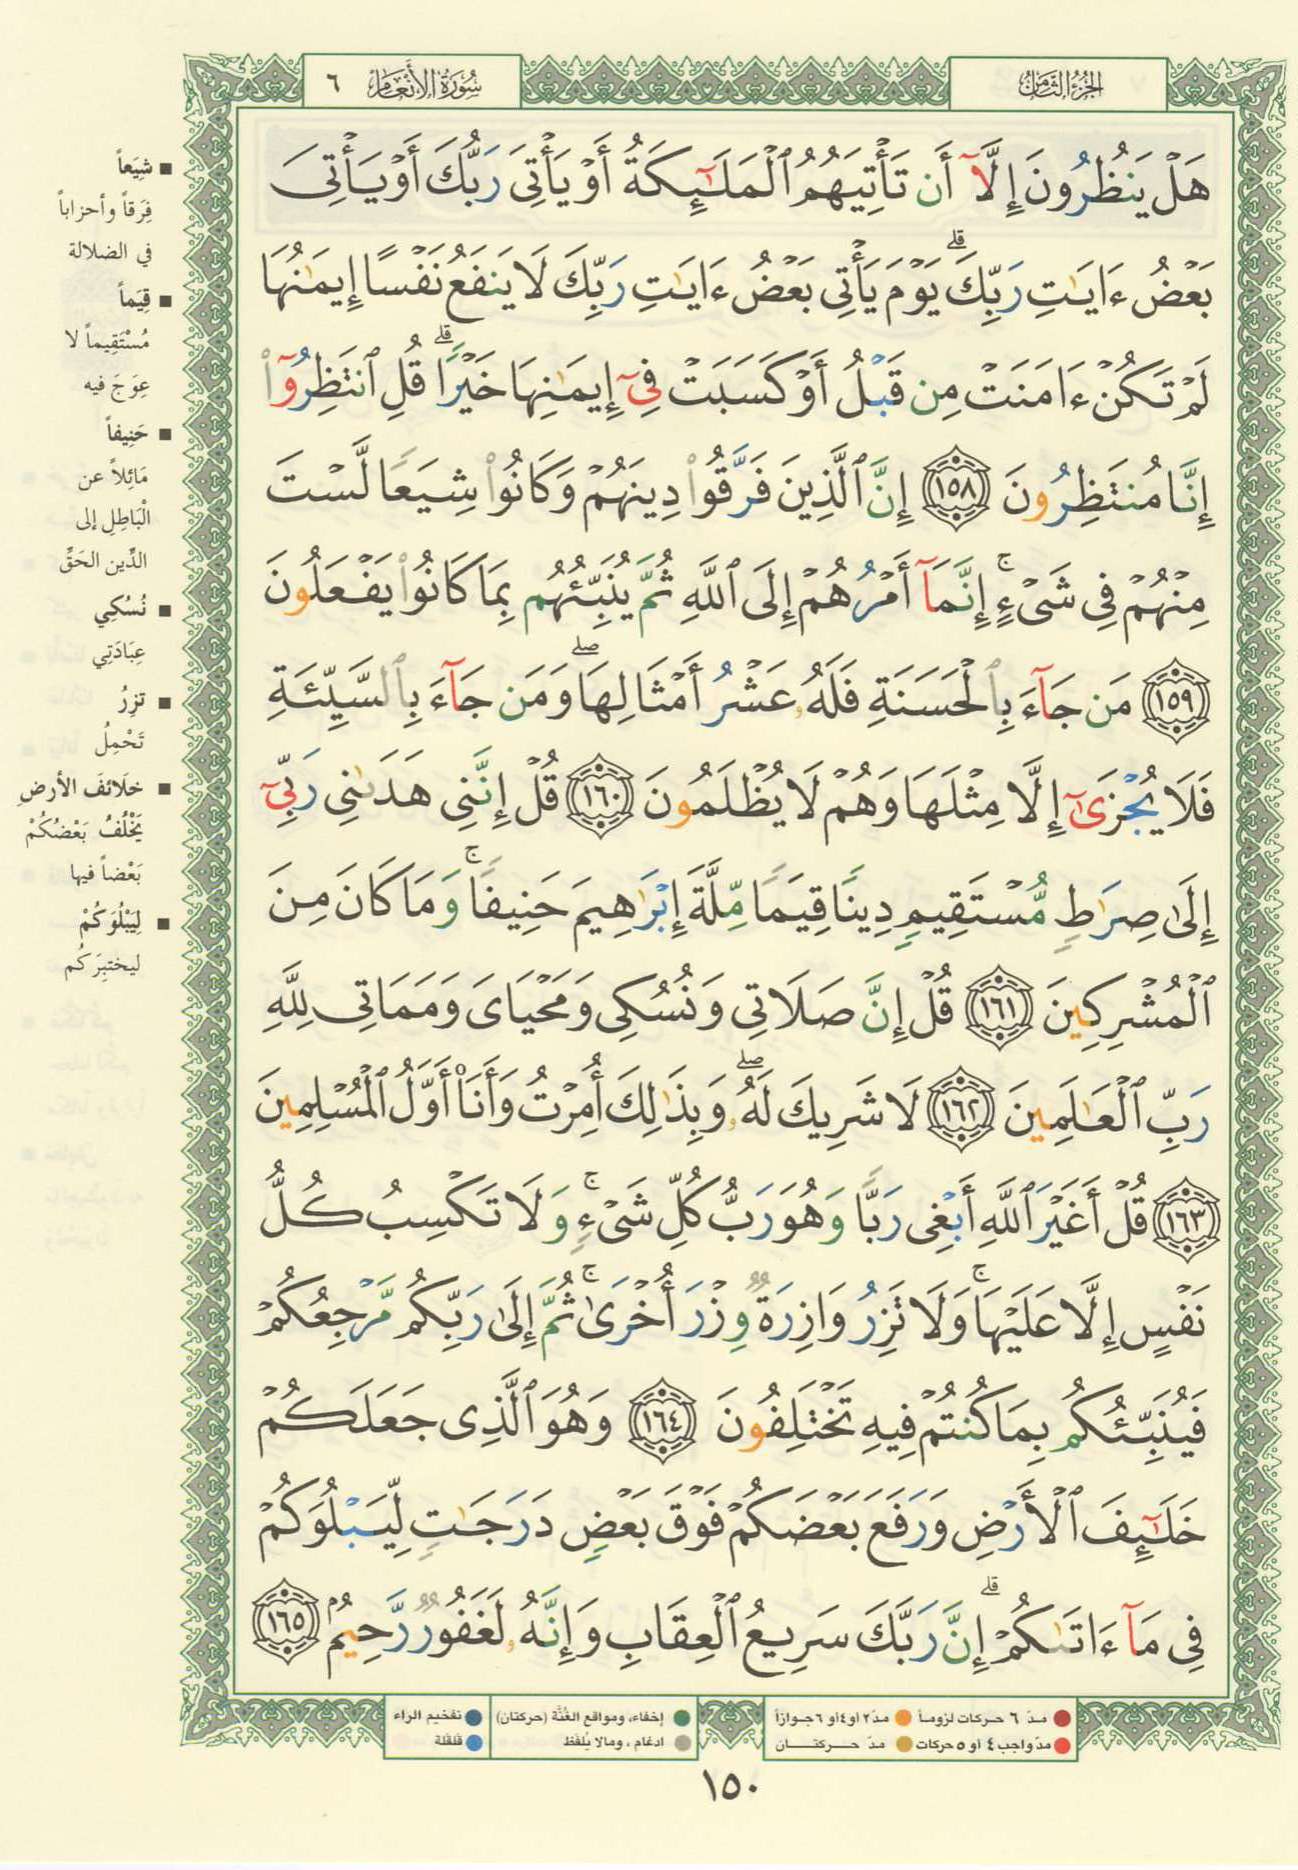 الجزء الثامن
سورة الأنعام ٦
هَلْ يَنظُرُونَ إِلَّآ أَن تَأْتِيَهُمُ ٱلْمَلَـٰٓئِكَةُ أَوْ يَأْتِىَ رَبُّكَ أَوْ يَأْتِىَ
بَعْضُ ءَايَـٰتِ رَبِّكَ ۗ يَوْمَ يَأْتِى بَعْضُ ءَايَـٰتِ رَبِّكَ لَا يَنفَعُ نَفْسًا إِيمَـٰنُهَا
لَمْ تَكُنْ ءَامَنَتْ مِن قَبْلُ أَوْ كَسَبَتْ فِىٓ إِيمَـٰنِهَا خَيْرًا ۗ قُلِ ٱنتَظِرُوٓا۟
إِنَّا مُنتَظِرُونَ ١٥٨ إِنَّ ٱلَّذِينَ فَرَّقُوا۟ دِينَهُمْ وَكَانُوا۟ شِيَعًا لَّسْتَ
مِنْهُمْ فِى شَىْءٍ ۚ إِنَّمَآ أَمْرُهُمْ إِلَى ٱللَّهِ ثُمَّ يُنَبِّئُهُم بِمَا كَانُوا۟ يَفْعَلُونَ
١٥٩ مَن جَآءَ بِٱلْحَسَنَةِ فَلَهُۥ عَشْرُ أَمْثَالِهَا ۖ وَمَن جَآءَ بِٱلسَّيِّئَةِ
فَلَا يُجْزَىٰٓ إِلَّا مِثْلَهَا وَهُمْ لَا يُظْلَمُونَ ١٦٠ قُلْ إِنَّنِى هَدَىٰنِى رَبِّىٓ
إِلَىٰ صِرَٰطٍ مُّسْتَقِيمٍ دِينًا قِيَمًا مِّلَّةَ إِبْرَٰهِيمَ حَنِيفًا ۚ وَمَا كَانَ مِنَ
ٱلْمُشْرِكِينَ ١٦١ قُلْ إِنَّ صَلَاتِى وَنُسُكِى وَمَحْيَاىَ وَمَمَاتِى لِلَّهِ
رَبِّ ٱلْعَـٰلَمِينَ ١٦٢ لَا شَرِيكَ لَهُۥ ۖ وَبِذَٰلِكَ أُمِرْتُ وَأَنَا۠ أَوَّلُ ٱلْمُسْلِمِينَ
١٦٣ قُلْ أَغَيْرَ ٱللَّهِ أَبْغِى رَبًّا وَهُوَ رَبُّ كُلِّ شَىْءٍ ۚ وَلَا تَكْسِبُ كُلُّ
نَفْسٍ إِلَّا عَلَيْهَا ۚ وَلَا تَزِرُ وَازِرَةٌ وِزْرَ أُخْرَىٰ ۚ ثُمَّ إِلَىٰ رَبِّكُم مَّرْجِعُكُمْ
فَيُنَبِّئُكُم بِمَا كُنتُمْ فِيهِ تَخْتَلِفُونَ ١٦٤ وَهُوَ ٱلَّذِى جَعَلَكُمْ
خَلَـٰٓئِفَ ٱلْأَرْضِ وَرَفَعَ بَعْضَكُمْ فَوْقَ بَعْضٍ دَرَجَـٰتٍ لِّيَبْلُوَكُمْ
فِى مَآ ءَاتَىٰكُمْ ۗ إِنَّ رَبَّكَ سَرِيعُ ٱلْعِقَابِ وَإِنَّهُۥ لَغَفُورٌ رَّحِيمٌ ١٦٥
■ شِيَعاً
فِرَقاً وأحزاباً
في الضلالة
■ قِيَماً
مُسْتَقِيماً لا
عِوَجَ فيه
■ حَنِيفاً
مَائِلاً عن
الْبَاطِلِ إلى
الدِّين الحَقِّ
■ نُسُكِي
عِبَادَتِي
■ تَزِرُ
تَحْمِلُ
■ خلَائفَ الأرضِ
يَخْلُفُ بَعْضُكُمْ
بَعْضاً فيها
■ لِيَبْلُوَكُمْ
ليختبِرَكُم
مدّ ٦ حركات لزوماً مدّ ٢ او ٤ او ٦ جوازاً إخفاء، ومواقع الغُنَّة (حركتان) تفخيم الراء
مدّ واجب ٤ او ٥ حركات مدّ حركتان ادغام، ومالا يُلفظ قلقلة
١٥٠